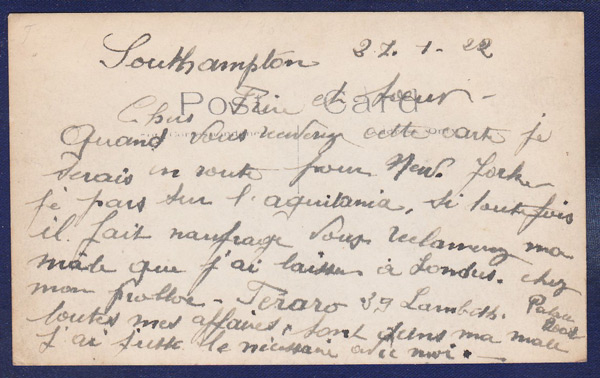 Southampton 27.1.22
Post Card
Chers Frère et Soeur -
Quand vous recevrez cette carte je
serais en route pour New. York
je pars sur l'aquitania, si toutefois
il fait naufrage vous reclamerez ma
malle que j'ai laisser à Londres. chez
mon - Teraro 39 Lambeth. Palace Road
toutes mes affaires, sont dans ma malle
j'ai juste le nécessaire avec moi. -